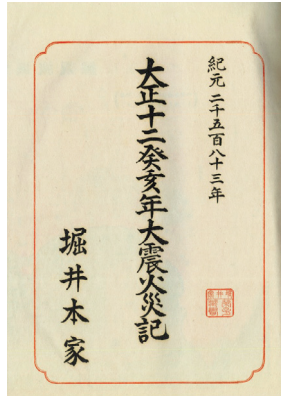 紀元二千五百八十三年
大正十二癸亥年大震火災記
堀井本家